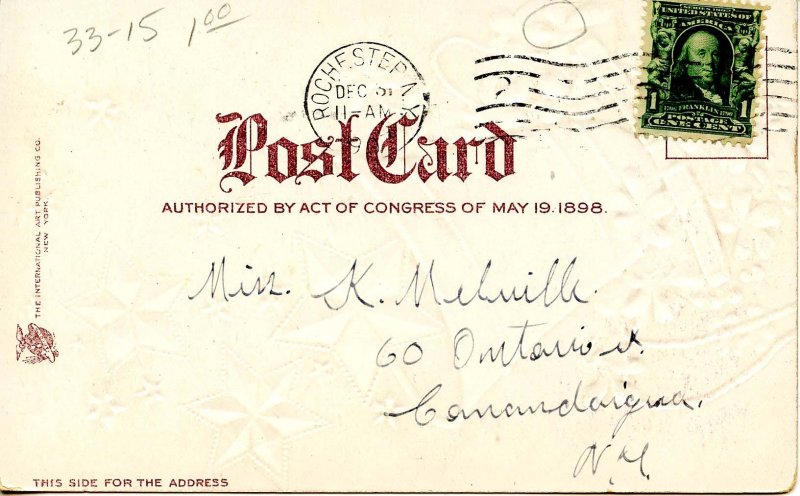 33-15 1.00
ROCHESTER, N.Y.
DEC 31
11-AM
SERIES 1902
UNITED STATES OF AMERICA
1 FRANKLIN 1
POSTAGE
ONE CENT
Post Card
AUTHORIZED BY ACT OF CONGRESS OF MAY 19. 1898.
THE INTERNATIONAL ART PUBLISHING CO.
NEW YORK.
Miss. K. Melville.
60 Ontario st.
Canandaigua.
N.Y.
THIS SIDE FOR THE ADDRESS